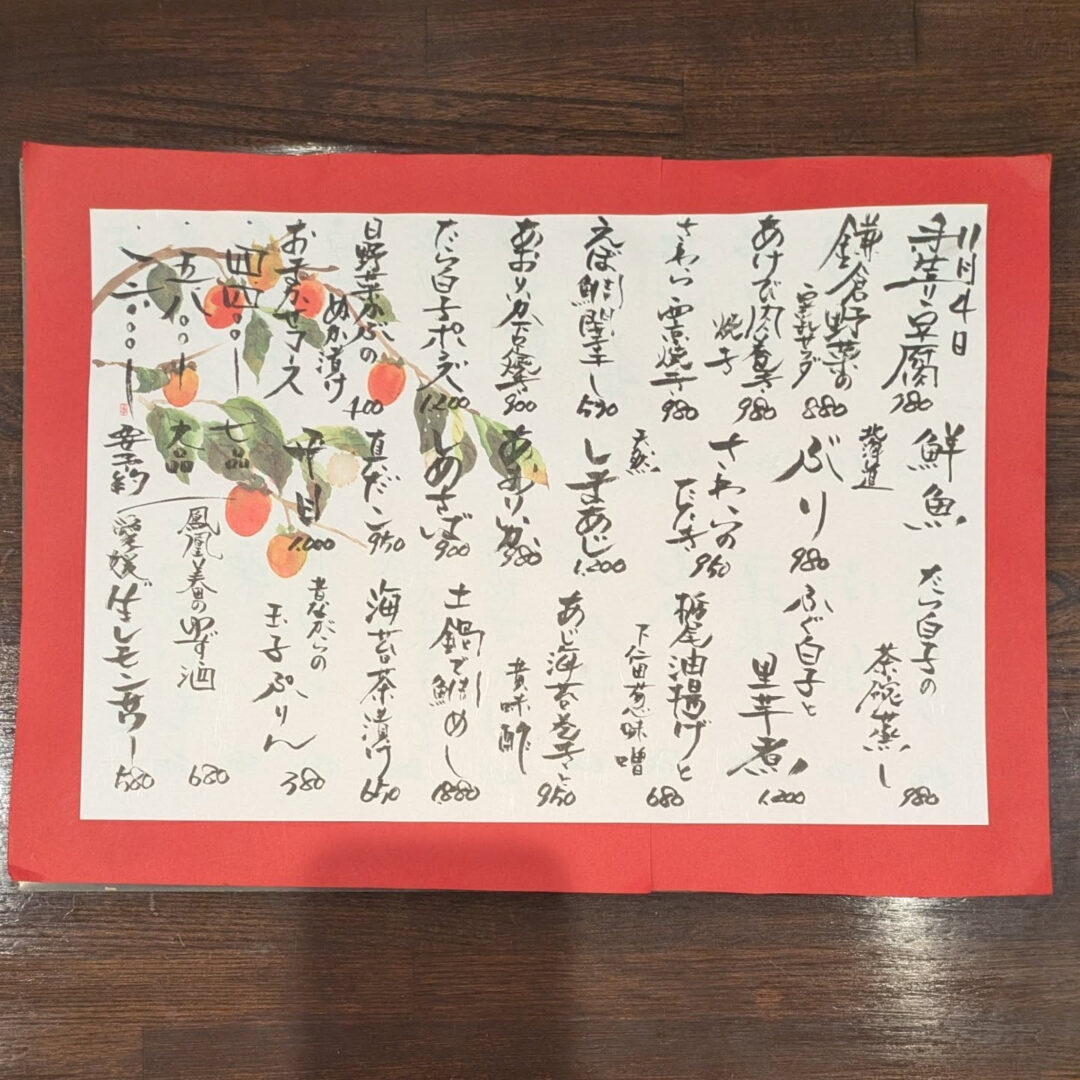 11月4日
手造り豆腐
780
鎌倉野菜の
サラダ
880
あけび肉巻き
焼き
980
さわら西京焼き
980
えぼ鯛開干し
590
あおりいか
900
たら白子ポン酢
1,200
日野菜かぶの
ぬか漬け
400
おまかせコース
・四四〇〇ー 七品
・五八〇〇ー 六品
・一六〇〇〇ー 要予約
鮮魚
北海道
ぶり
980
さわらの
たたき
950
天然
しまあじ
1,200
あおりいか
980
しめさば
900
真だこ
950
平目
1,000
たら白子の
茶碗蒸し
980
ふぐ白子と
里芋煮
1,200
栃尾油揚げと
下仁田葱味噌
680
あじ海苔巻きと
黄味酢
950
土鍋で鯛めし
1880
海苔茶漬け
650
昔ながらの
玉子ぷりん
380
鳳凰美田のゆず酒
680
愛媛生レモンサワー
580